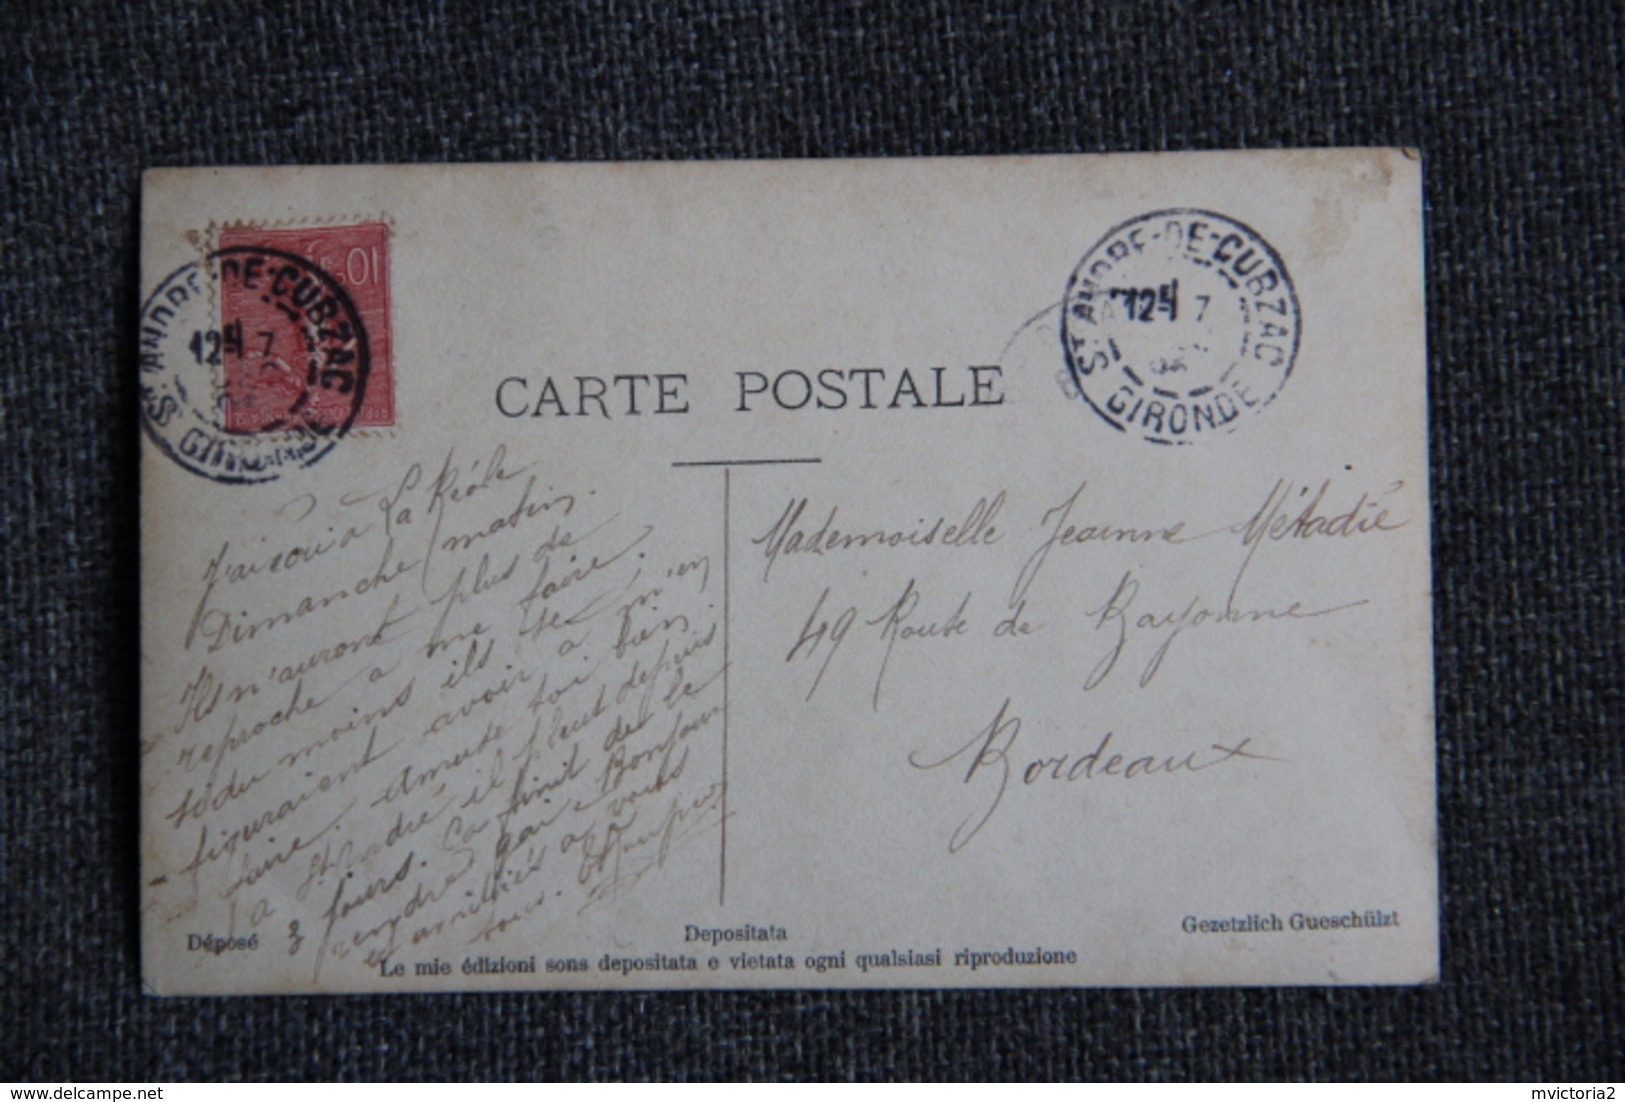 10
ST ANDRE-DE-CUBZAC
12 7
GIRONDE
ST ANDRE-DE-CUBZAC
12 7
GIRONDE
CARTE POSTALE
J'ai à La Réole
Dimanche matin.
Ils n'auront plus de
reproche a me faire.
du moins ils se
figuraient avoir a m'en
faire. Amuse toi bien
a St André il pleut depuis
3 jours. Ca finit de le
rendre gai. Bonjour
et amitiés a vous
tous.
Mademoiselle Jeanne Métadié
49 Route de Bayonne
Bordeaux
Déposé
Depositata
Gezetzlich Gueschülzt
Le mie édizioni sons depositata e vietata ogni qualsiasi riproduzione
mvictoria2